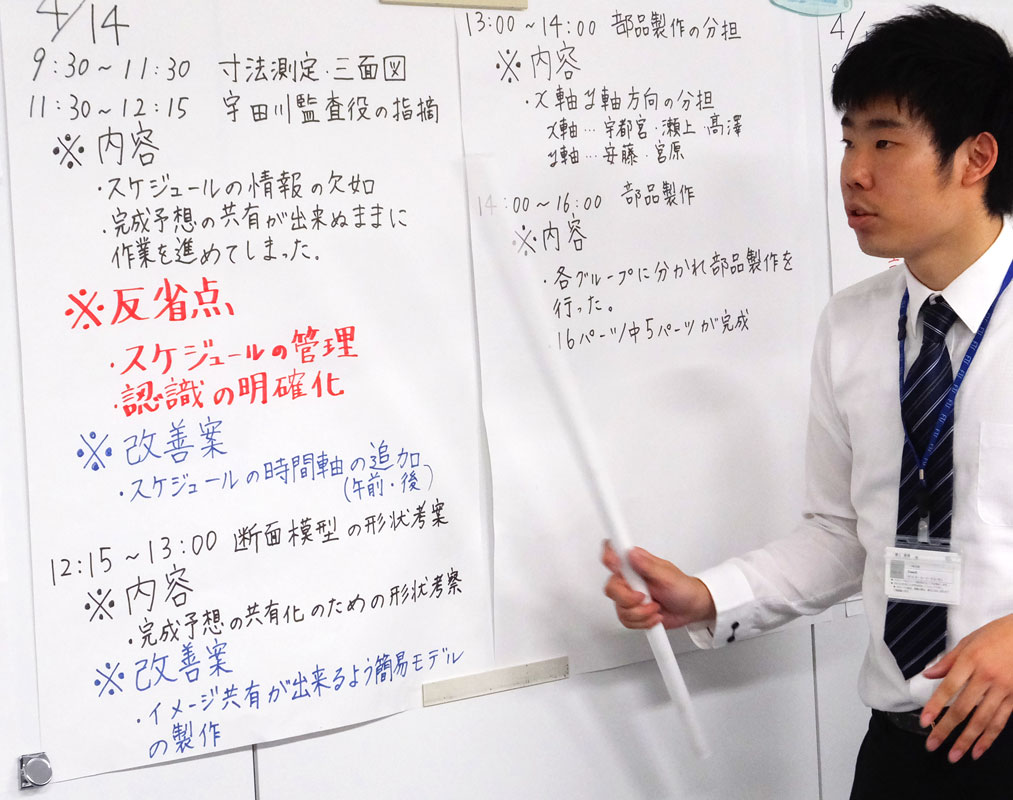 4/14
9:30～11:30 寸法測定・三面図
11:30～12:15 宇田川監査役の指摘
※内容
・スケジュールの情報の欠如
・完成予想の共有が出来ぬままに
作業を進めてしまった。
※反省点、
・スケジュールの管理
・認識の明確化
※改善案
・スケジュールの時間軸の追加
(午前・後)
12:15～13:00 断面模型の形状考案
※内容
・完成予想の共有化のための形状考察
※改善案
・イメージ共有が出来るよう簡易モデル
の製作
13:00～14:00 部品製作の分担
※内容
・x軸y軸方向の分担
x軸…宇都宮・瀬上・髙澤
y軸…安藤・宮原
14:00～16:00 部品製作
※内容
・各グループに分かれ部品製作を
行った。
・16パーツ中5パーツが完成
4/